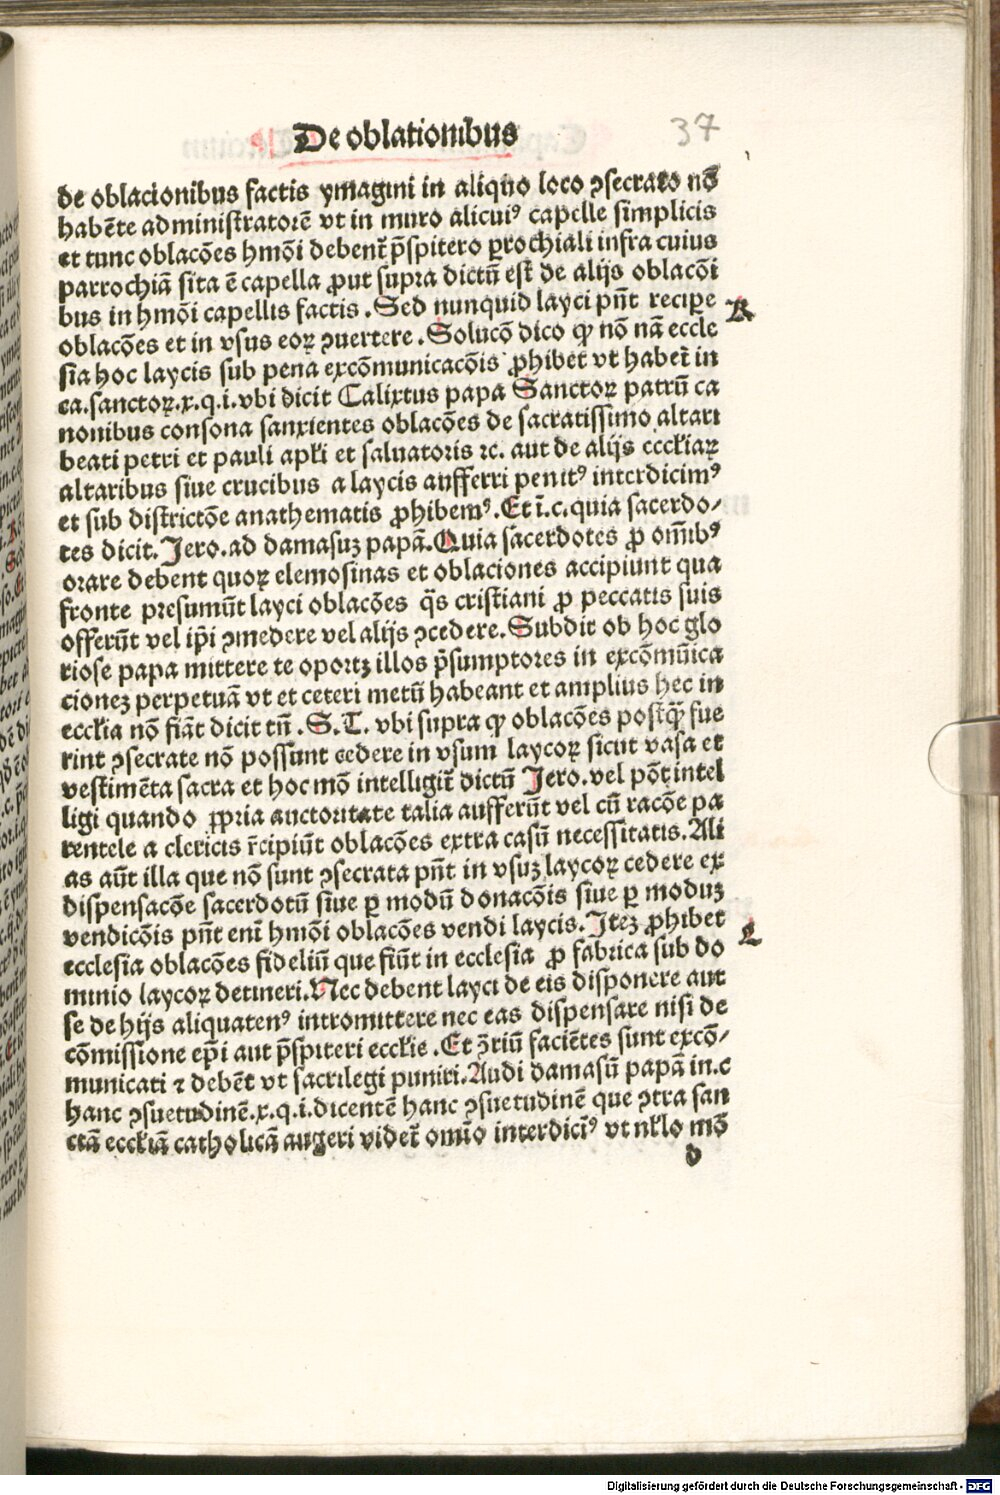 De oblationibus
37
de oblacionibus factis ymagini in aliquo loco ↄsecrato nō
habēte administratorē vt in muro alicuiꝰ capelle simplicis
et tunc oblacōes hmōi debent̄ p̄spitero ꝑrochiali infra cuius
parrochiā sita ē capella ꝓut supra dictū est de alijs oblacōi
bus in hmōi capellis factis . Sed nunquid layci pn̄t recipe
K
oblacōes et in vsus eoꝝ ↄuertere . Solucō dico ꝙ nō nā eccle
sia hoc laycis sub pena excōmunicacōis ꝓhibet vt habet̄ in
ca.sanctoꝝ.x.q.i.vbi dicit Calixtus papa Sanctoꝝ patrū ca
nonibus consona sanxientes oblacōes de sacratissimo altari
beati petri et pauli apl̄i et saluatoris ⁊c. aut de alijs eccl̄iaꝝ
altaribus siue crucibus a laycis aufferri penitꝰ interdicimꝰ
et sub districtōe anathematis ꝓhibemꝰ. Et ī.c.quia sacerdo⸗
tes dicit. Jero.ad damasuꝫ papā.Quia sacerdotes ꝓ om̄ibꝰ
orare debent quoꝝ elemosinas et oblaciones accipiunt qua
fronte presumūt layci oblacōes qs̄ cristiani ꝓ peccatis suis
offerūt vel ip̄i ↄmedere vel alijs ↄcedere. Subdit ob hoc glo
riose papa mittere te oportꝫ illos p̄sumptores in excōmūica
cioneꝫ perpetuā vt et ceteri metū habeant et amplius hec in
eccl̄ia nō fiāt dicit tn̄ .S.T. vbi supra ꝙ oblacōes postq̄ fue
rint ↄsecrate nō possunt cedere in vsum laycoꝝ sicut vasa et
vestimēta sacra et hoc mō intelligit̄ dictū Jero.vel pōt intel
ligi quando ꝓpria auctoritate talia aufferūt vel cū racōe pa
rentele a clericis r̄cipiūt oblacōes extra casū necessitatis. Ali
as aūt illa que nō sunt ↄsecrata pn̄t in vsuꝫ laycoꝝ cedere ex
dispensacōe sacerdotū siue ꝑ modū donacōis siue ꝑ moduꝫ
vendicōis pn̄t eni hmōi oblacōes vendi laycis. Iteꝫ ꝓhibet
L
ecclesia oblacōes fideliū que fiūt in ecclesia ꝓ fabrica sub do
minio laycoꝝ detineri. Nec debent layci de eis disponere aut
se de hijs aliquatenꝰ intromittere nec eas dispensare nisi de
cōmissione ep̄i aut p̄spiteri eccl̄ie . Et ↄ̄riū faciētes sunt excō⸗
municati ⁊ debēt vt sacrilegi puniri. Audi damasū papā in.c
hanc ↄsuetudinē.x.q.i.dicentē hanc ↄsuetudinē que ↄtra san
ctā eccl̄iā catholicā augeri videt̄ om̄io interdiciꝰ vt nl̄lo mō
d
Digitalisierung gefördert durch die Deutsche Forschungsgemeinschaft - DFG